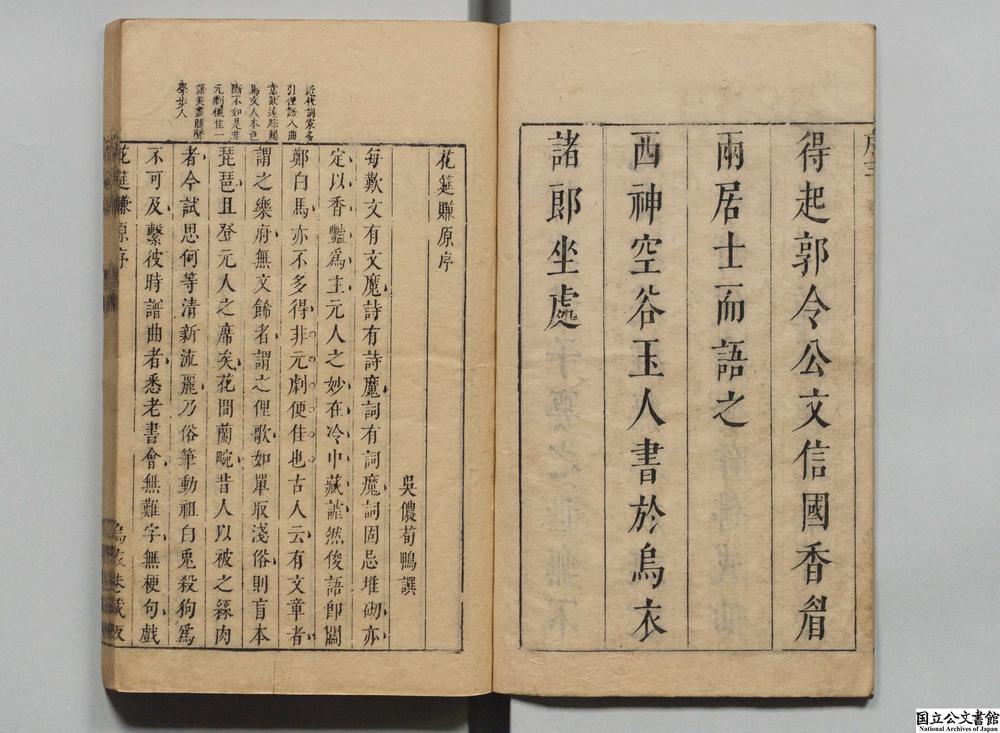 序三
得起郭令公文信國香眉
兩居士而語之
西神空谷玉人書於烏衣
諸郎坐處
近代詞家多
引俚語入曲
馬文人本色
斷不如是非
元劇便佳一
學步人
花筵賺原序
吳儂荀鴨譔
每歎文有文魔詩有詩魔詞有詞魔詞固忌堆砌亦
定以香豔爲主元人之妙在冷中藏謔然俊語即關
鄭白馬亦不多得非元劇便佳也古人云有文章者
謂之樂府無文餙者謂之俚歌如單取淺俗則盲本
琵琶且登元人之席矣花間蘭畹昔人以被之絲肉
者今試思何等清新流麗乃俗筆動祖白兎殺狗爲
不可及繫彼時譜曲者悉老書會無難字無梗句戲
花筵賺原序
烏衣巷藏板
国立公文書館
National Archives of Japan